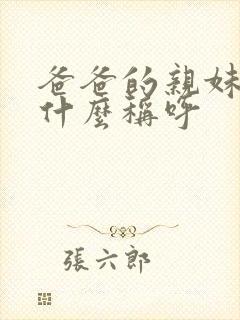 爸爸的親妹
什麼稱呼
張六郎